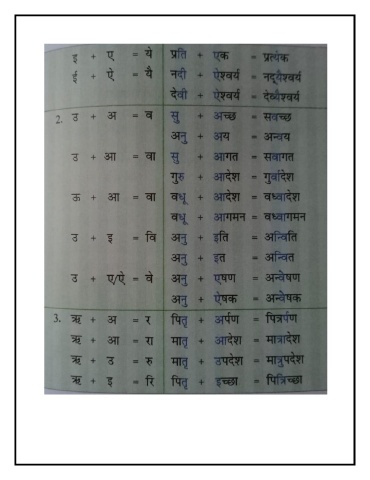 इ + ए = ये प्रति + एक = प्रत्येक
ई + ऐ = यै नदी + ऐश्वर्य = नद्यैश्वर्य
देवी + ऐश्वर्य = देव्यैश्वर्य
2. उ + अ = व सु + अच्छ = सवच्छ
अनु + अय = अन्वय
उ + आ = वा सु + आगत = सवागत
गुरु + आदेश = गुर्वादेश
ऊ + आ = वा वधू + आदेश = वध्वादेश
वधू + आगमन = वध्वागमन
उ + इ = वि अनु + इति = अन्विति
अनु + इत = अन्वित
उ + ए/ऐ = वे अनु + एषण = अन्वेषण
अनु + ऐषक = अन्वेषक
3. ऋ + अ = र पितृ + अर्पण = पित्रर्पण
ऋ + आ = रा मातृ + आदेश = मात्रादेश
ऋ + उ = रु मातृ + उपदेश = मात्रुपदेश
ऋ + इ = रि पितृ + इच्छा = पित्रिच्छा